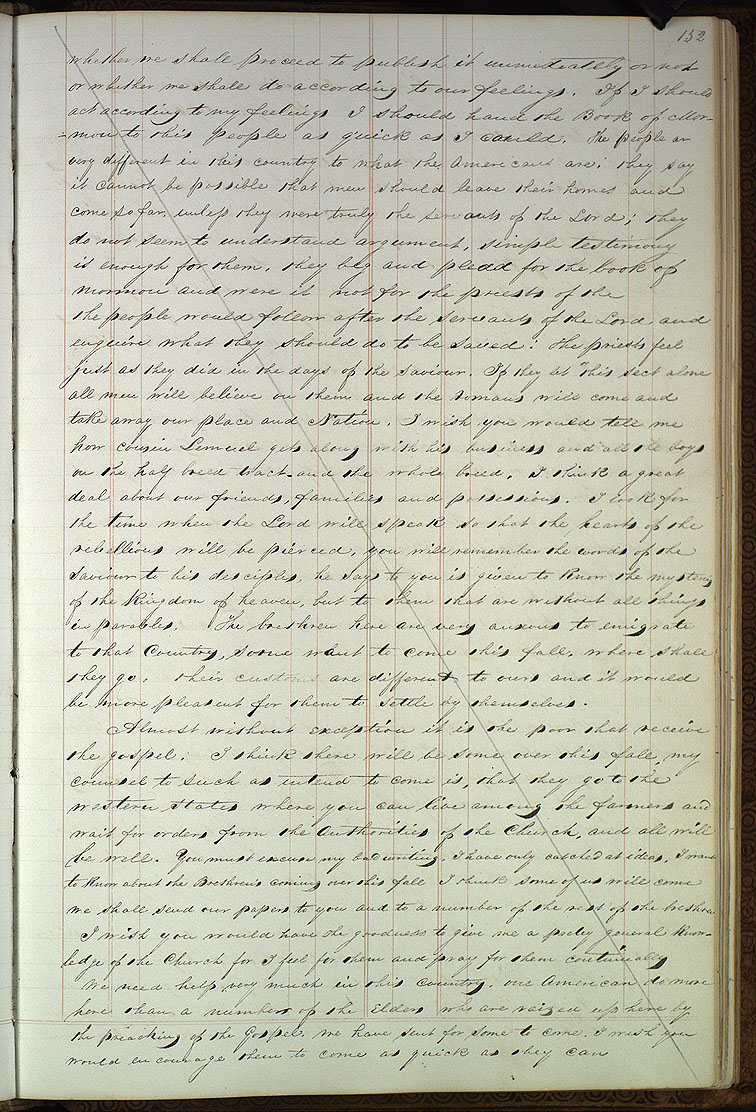 152
whether we shall proceed to publish it immediately or not
or whether we shall do according to our feelings. If I should
act according to my feelings I should hand the Book of Mor-
-mon to this people as quick as I could. The People ar
very different in this country to what the Americans are; they say
it cannot be possible that men should leave their homes and
come so far, unless they were truly the servants of the Lord; they
do not seem to understand argument, simple testimony
is enough for them, they beg and plead for the book of
mormon and were it not for the priests of the
the people would follow after the servants of the Lord and
enquire what they should do to be saved: the priests feel
just as they did in the days of the saviour. If they let "this sect alone
all men will believe on them and the romans will come and
take away our place and Nation. I wish you would tell me
how cousin Lemuel gets along with his business and all the boys
on the half breed tract and the whole breed, I think a great
deal about our friends, families and possessions. I look for
the time when the Lord will speak so that the hearts of the
rebellious will be pierced. you will remember the words of the
Saviour to his desciples, he says to you is given to know the mysteries
of the Kingdom of heaven, but to them that are without all things
in parables. The brethren here are very anxous to emigrate
to that Country, some want to come this fall, where shall
they go. their customs are different to ours and it would
be more pleasent for them to settle by themselves.
Almost without exception it is the poor that receive
the gospel. I think there will be some over this fall, my
council to such as intend to come is, that they go to the
western States where you can live among the farmers and
wait for orders from the Authorities of the Church, and all will
be well. You must excuse my bad writing. I have only catched at ideas, I want
to know about the Brethren's coming over this fall I think some of us will come
we shall send our papers to you and to a number of the rest of the brethren
I wish you would have the goodness to give me a prety general know-
ledge of the Church for I feel for them and pray for them continually
We need help very much in this country, one American do more
here than a number of the Elders who are raized up here by
the preaching of the Gospel, we have sent for some to come. I wish you
would encourage them to come as quick as they can